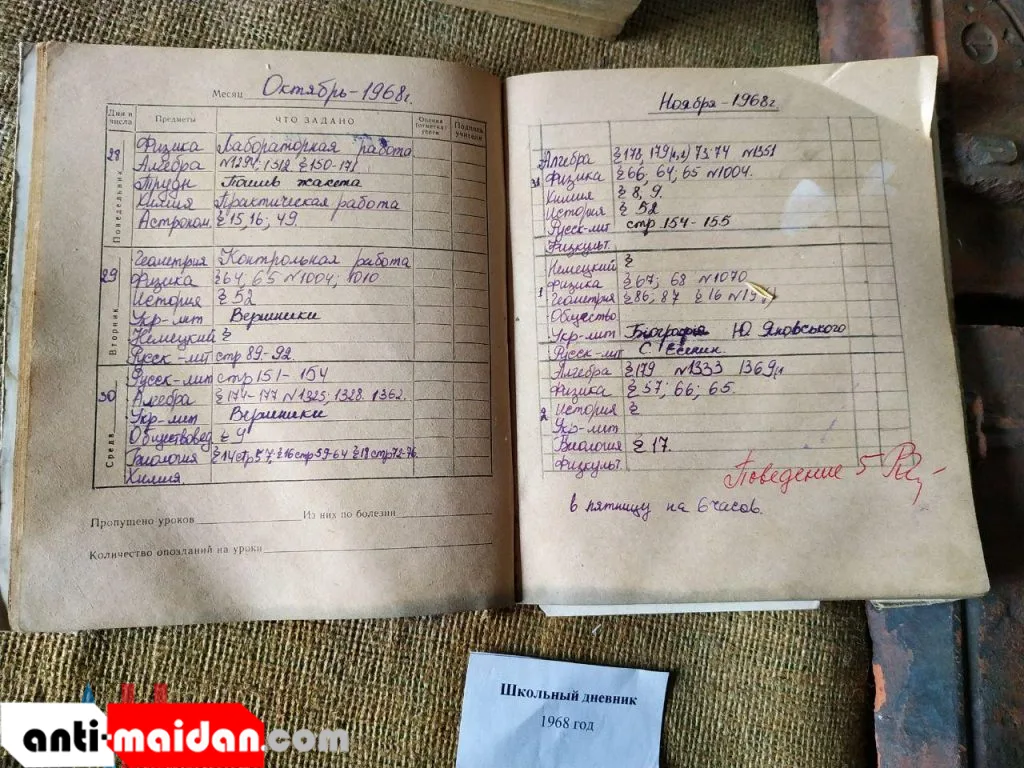 Месяц Октябрь-1968г.
Дни и числа Предметы ЧТО ЗАДАНО Оценка (отметка) успев. Подпись учителя
Понедельник 28
Физика Лабораторная работа
Алгебра №1294; 1312 § 150-171
Трудн Пошив жакета
Химия Практическая работа
Астроном. § 15, 16; 49.
Вторник 29
Геометрия Контрольная работа
Физика § 64, 65 №1004; 1010
История § 52
Укр-лит Вершники
Немецкий §
Русск-лит стр 89-92.
Среда 30
Русск-лит стр 151-154
Алгебра § 174-177 №1325; 1328. 1362.
Укр-лит Вершники
Обществовед § 4
Биология § 14 стр 57, § 16 стр 59-64 § 18 стр 72-76.
Химия
Пропущено уроков Из них по болезни
Количество опозданий на уроки
Ноября-1968г
31
Алгебра § 178, 179 73; 74 №1351
Физика § 66, 64, 65 №1004.
Химия § 8, 9.
История § 52
Русск-лит стр 154-155
Физкульт.
1
Немецкий §
Физика § 67; 68 №1070
Геометрия § 86, 87 § 16
Общество
Укр-лит Біографія Ю. Яновського
Русск-лит С. Есенин.
2
Алгебра § 179 №1333 1369
Физика § 57; 66; 65.
История §
Укр-лит
Биология § 17.
Физкульт.
Поведение 5
в пятницу на 6 часов.
Школьный дневник
1968 год
anti-maidan.com